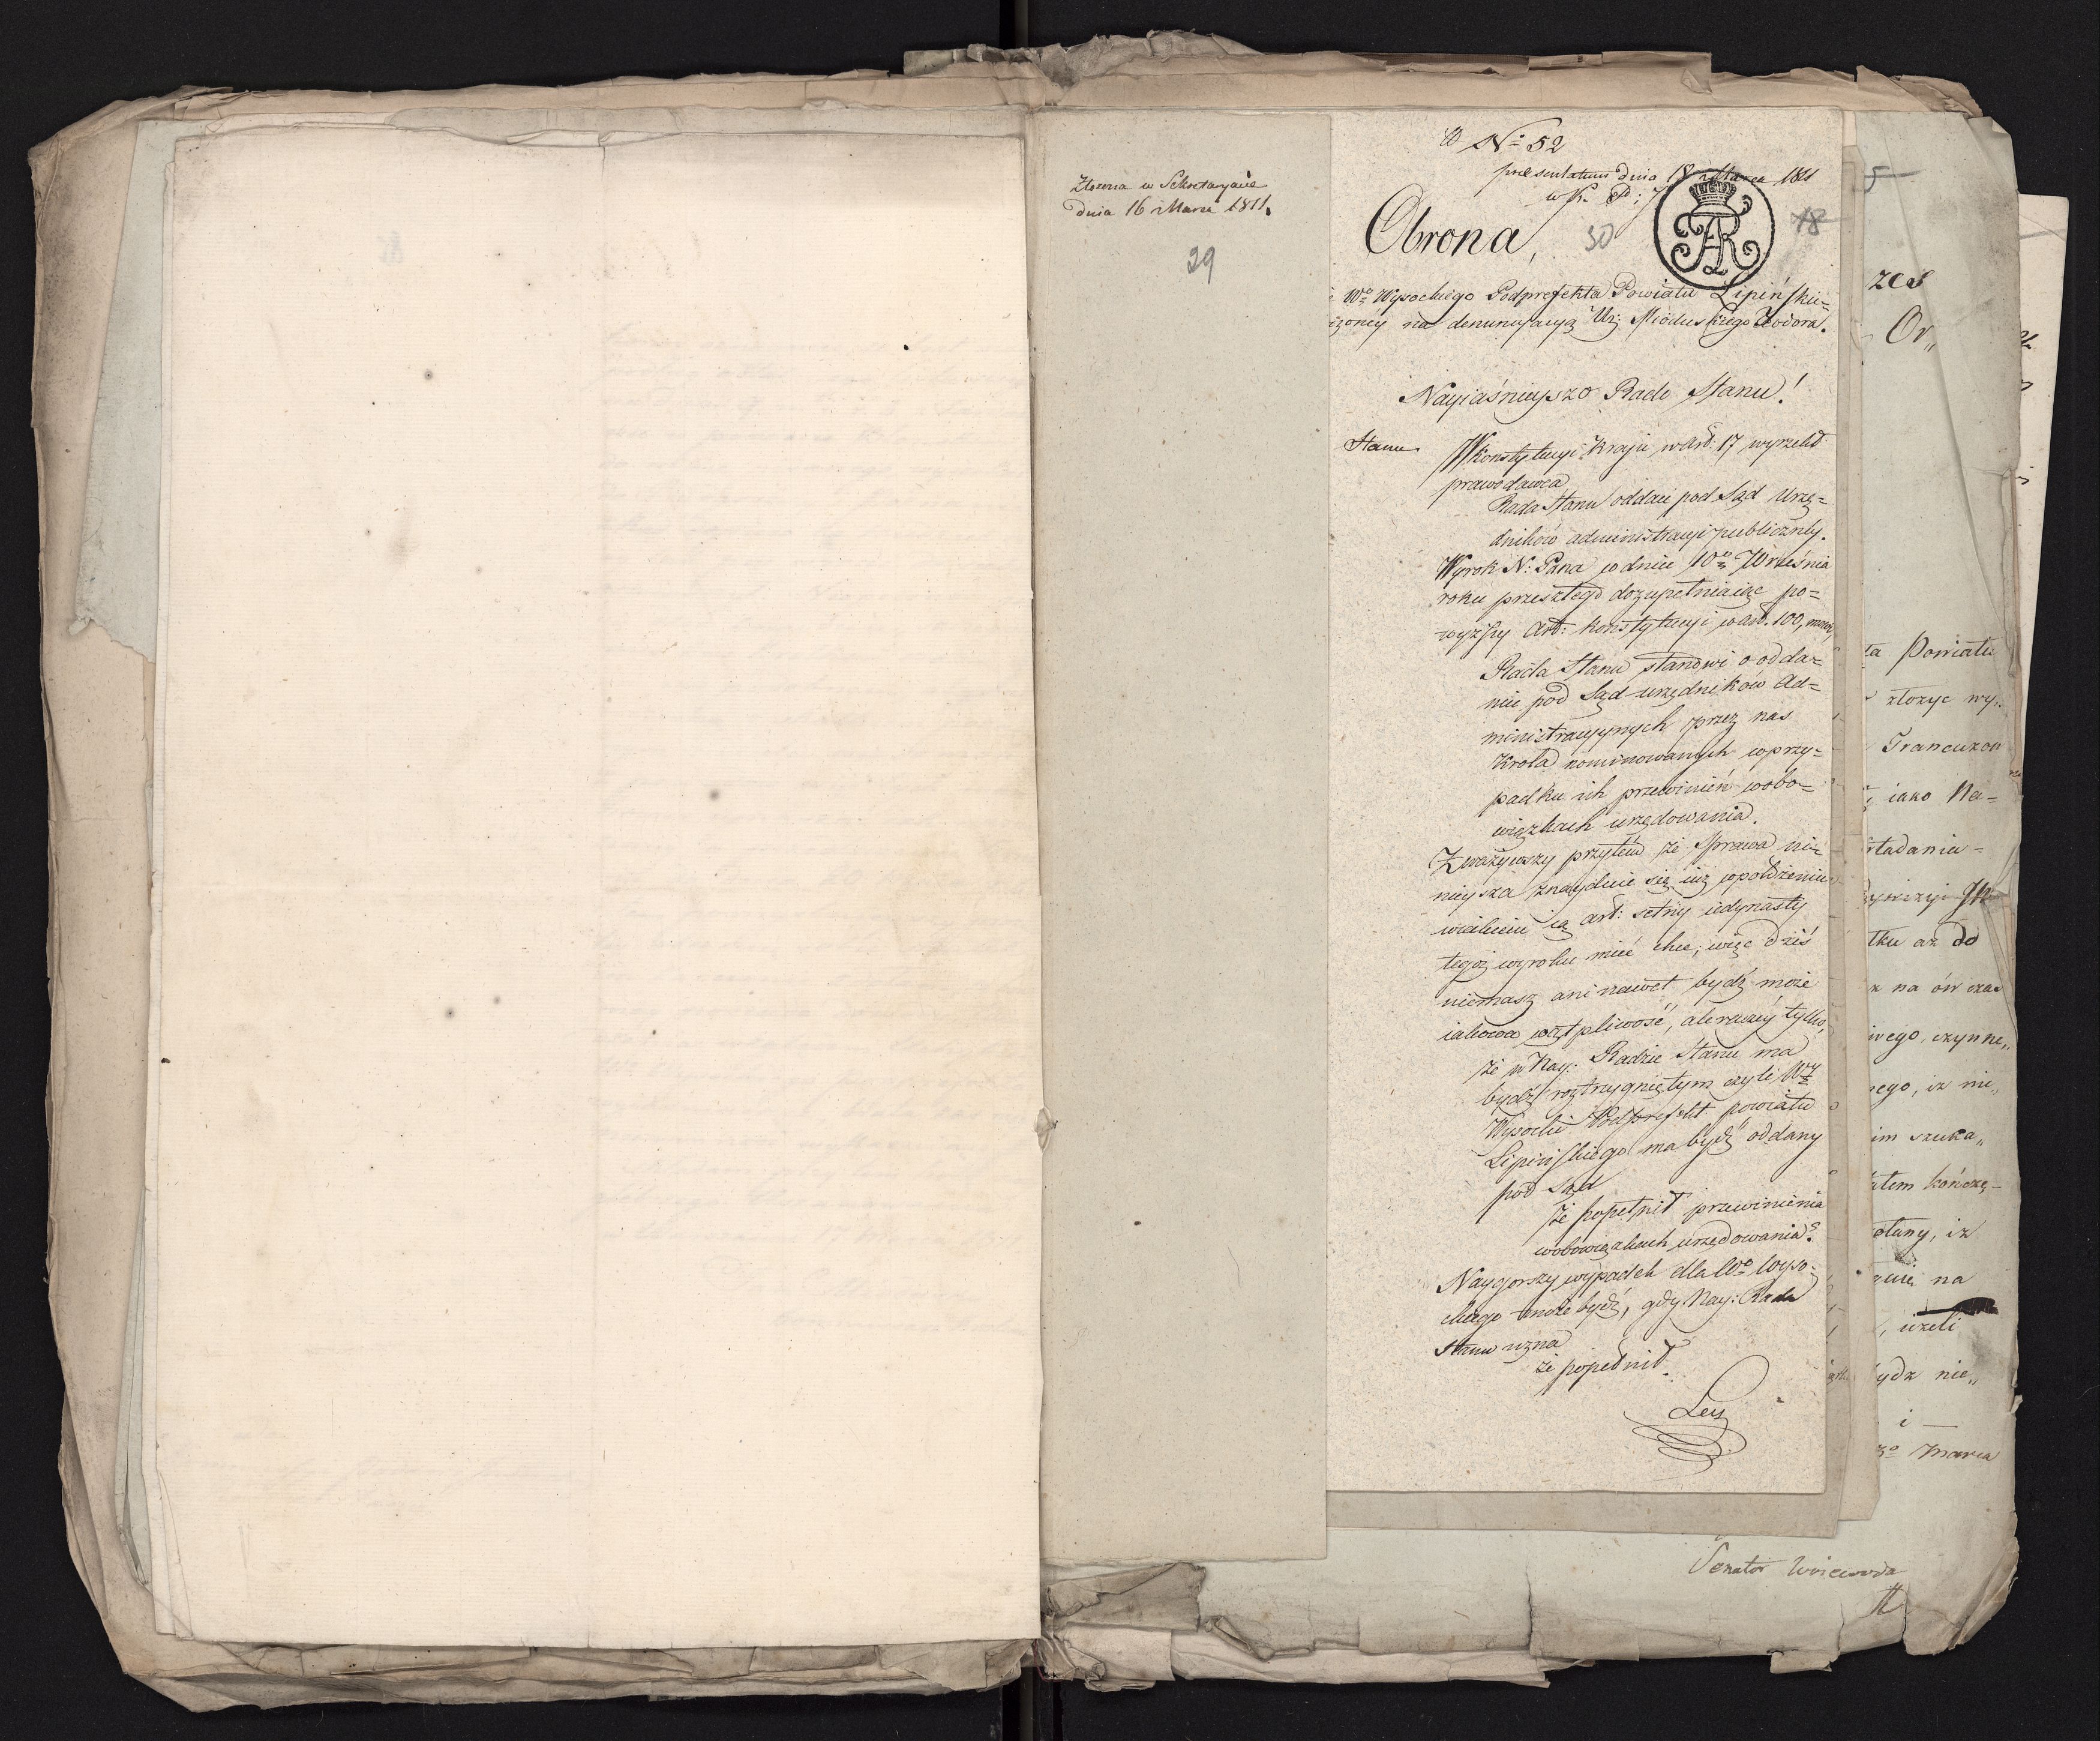 Złożona w Sekretaryacie
dnia 16 Marca 1811.
29
№ 52
presentatum dnia 18 Marca 1811
Obrona, 30 18
Wo Wysockiego Podprefekta Powiatu Lipińskie=
na denuncyacyą Ur: Mioduskiego Teodora.
Nayiaśnieysza Rado Stanu!
Stanu
W Konstytucyi Kraju w Art: 17 wyrzekł
prawodawca
Rada Stanu oddaie pod Sąd Urzę=
dników administracyi publiczney.
Wyrok N: Pana w dniu 10o Września
roku przeszłego dozupełniaiąc po=
wyższy Art: Konstytucyi w art. 100, mówi,
Rada Stanu stanowi o odda=
niu pod Sąd urzędników Ad=
ministracyynych przez nas
Króla nominowanych w przy=
padku ich przewinień w obo=
wiązkach urzędowania.
Zważywszy przytem że Sprawa ni=
nieysza znayduie się iuż w położeniu
w iakiem ią art: setny iedynasty
tegoż wyroku mieć chce; więc dziś
niemasz ani nawet bydź może
iakowa wątpliwość, ale raczéy tylko,
że w Nay: Radzie Stanu ma
bydź roztrzygniętym czyli Wy
Wysocki Podprefekt powiatu
Lipińskiego ma bydź oddany
pod Sąd
że popełnił przewinienia
w obowiązkach urzędowania?
Naygorszy wypadek dla Wo Wyso=
ckiego może bydź, gdy Nay: Rada
Stanu uzna
że popełnił.
5
zes
Or„
ta Powiatu
złożyć wy„
Francuzow
iako Na=
kładaniu=
tku aż do
na ów czas
wego, czynne„
nego, iż nie„
im szuka„
atem kończę=
iż
na
, ieżeli
bydz nie„
i —
3o Marca
Senator Woiewoda